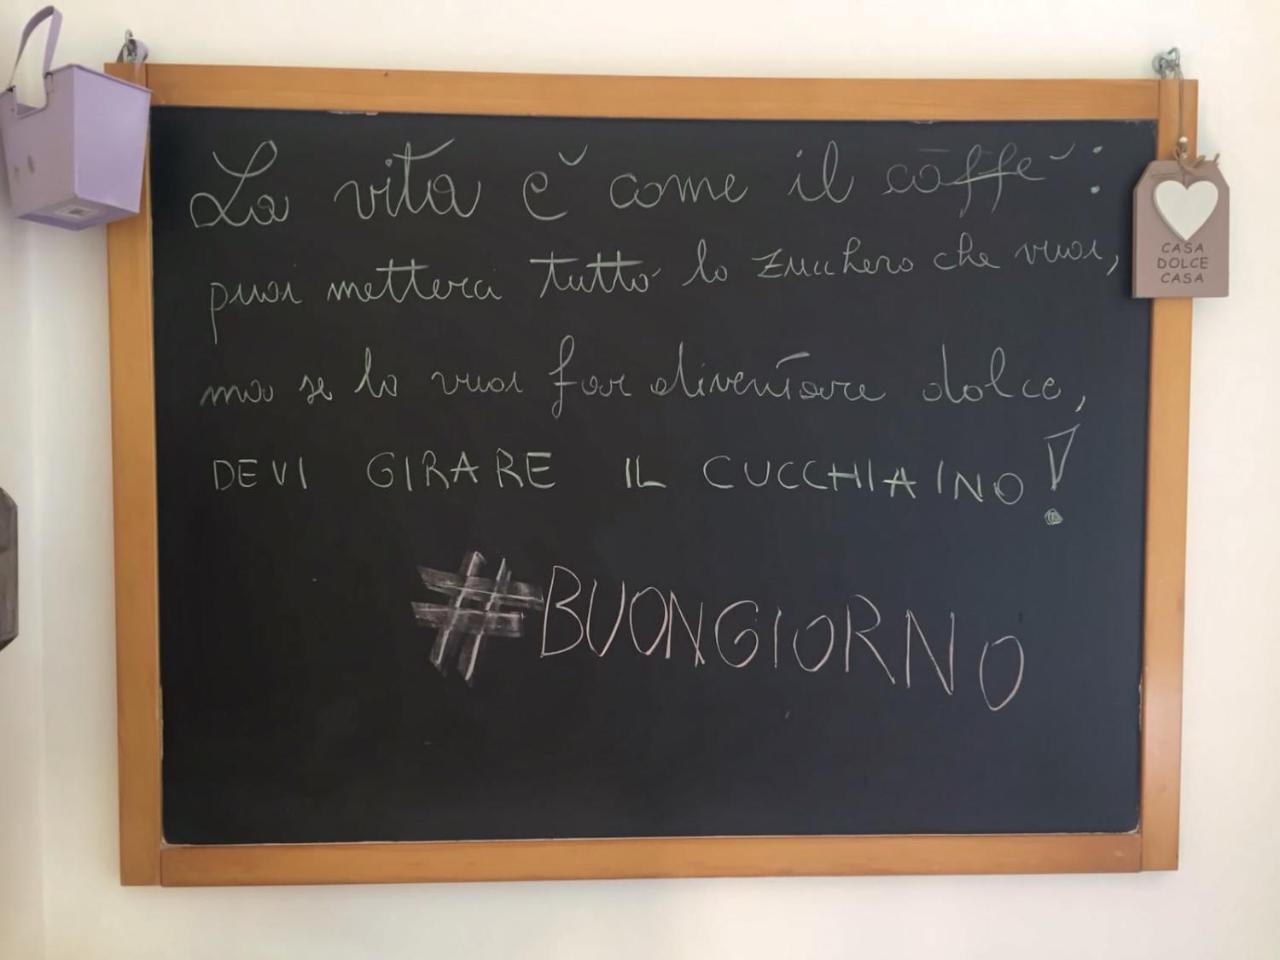 La vita è come il caffè:
puoi metterci tutto lo zucchero che vuoi,
ma se lo vuoi far diventare dolce,
DEVI GIRARE IL CUCCHIAINO!
#BUONGIORNO
CASA
DOLCE
CASA